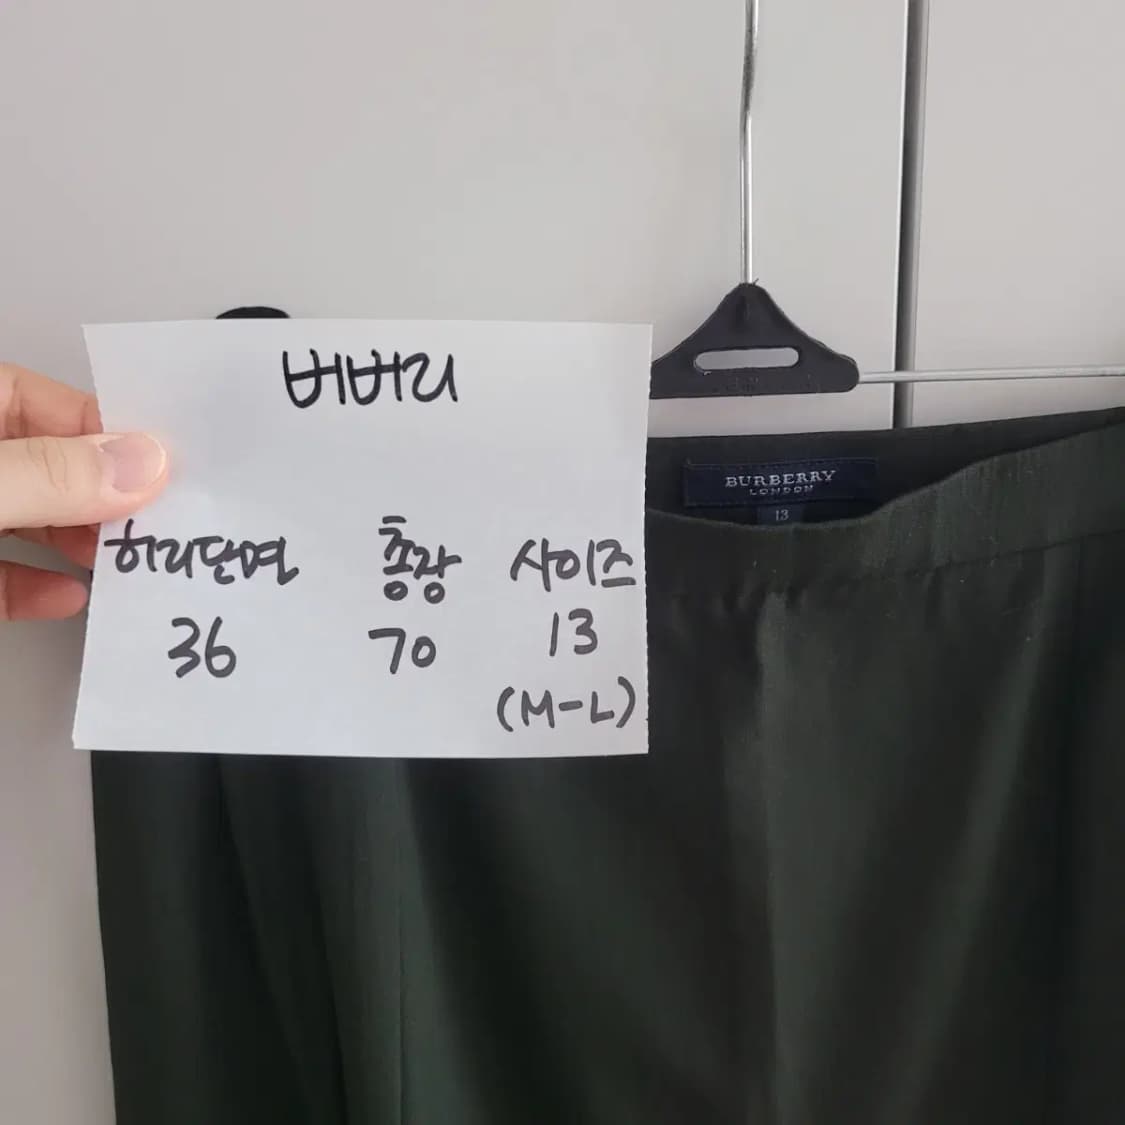 버버리
허리단면 총장 사이즈
36 70 13
(M-L)
BURBERRY
LONDON
13